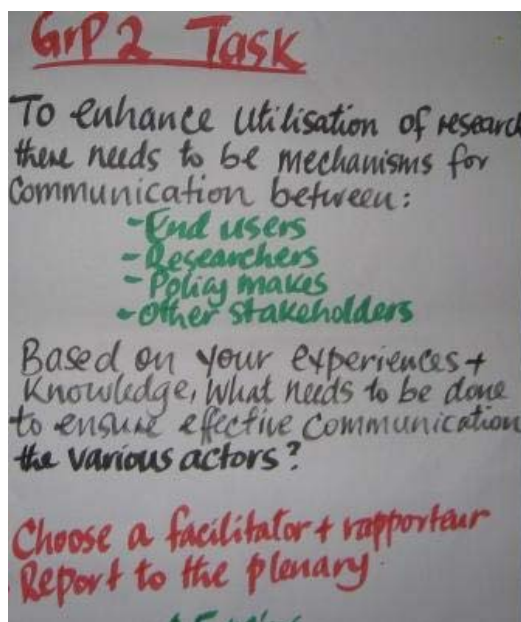 GrP 2 Task
To enhance utilisation of research
there needs to be mechanisms for
Communication between:
-End users
-Researchers
-Policy makes
-Other stakeholders
Based on your experiences +
Knowledge, What needs to be done
to ensure effective Communication
the various actors?
Choose a facilitator + rapporteur
Report to the plenary